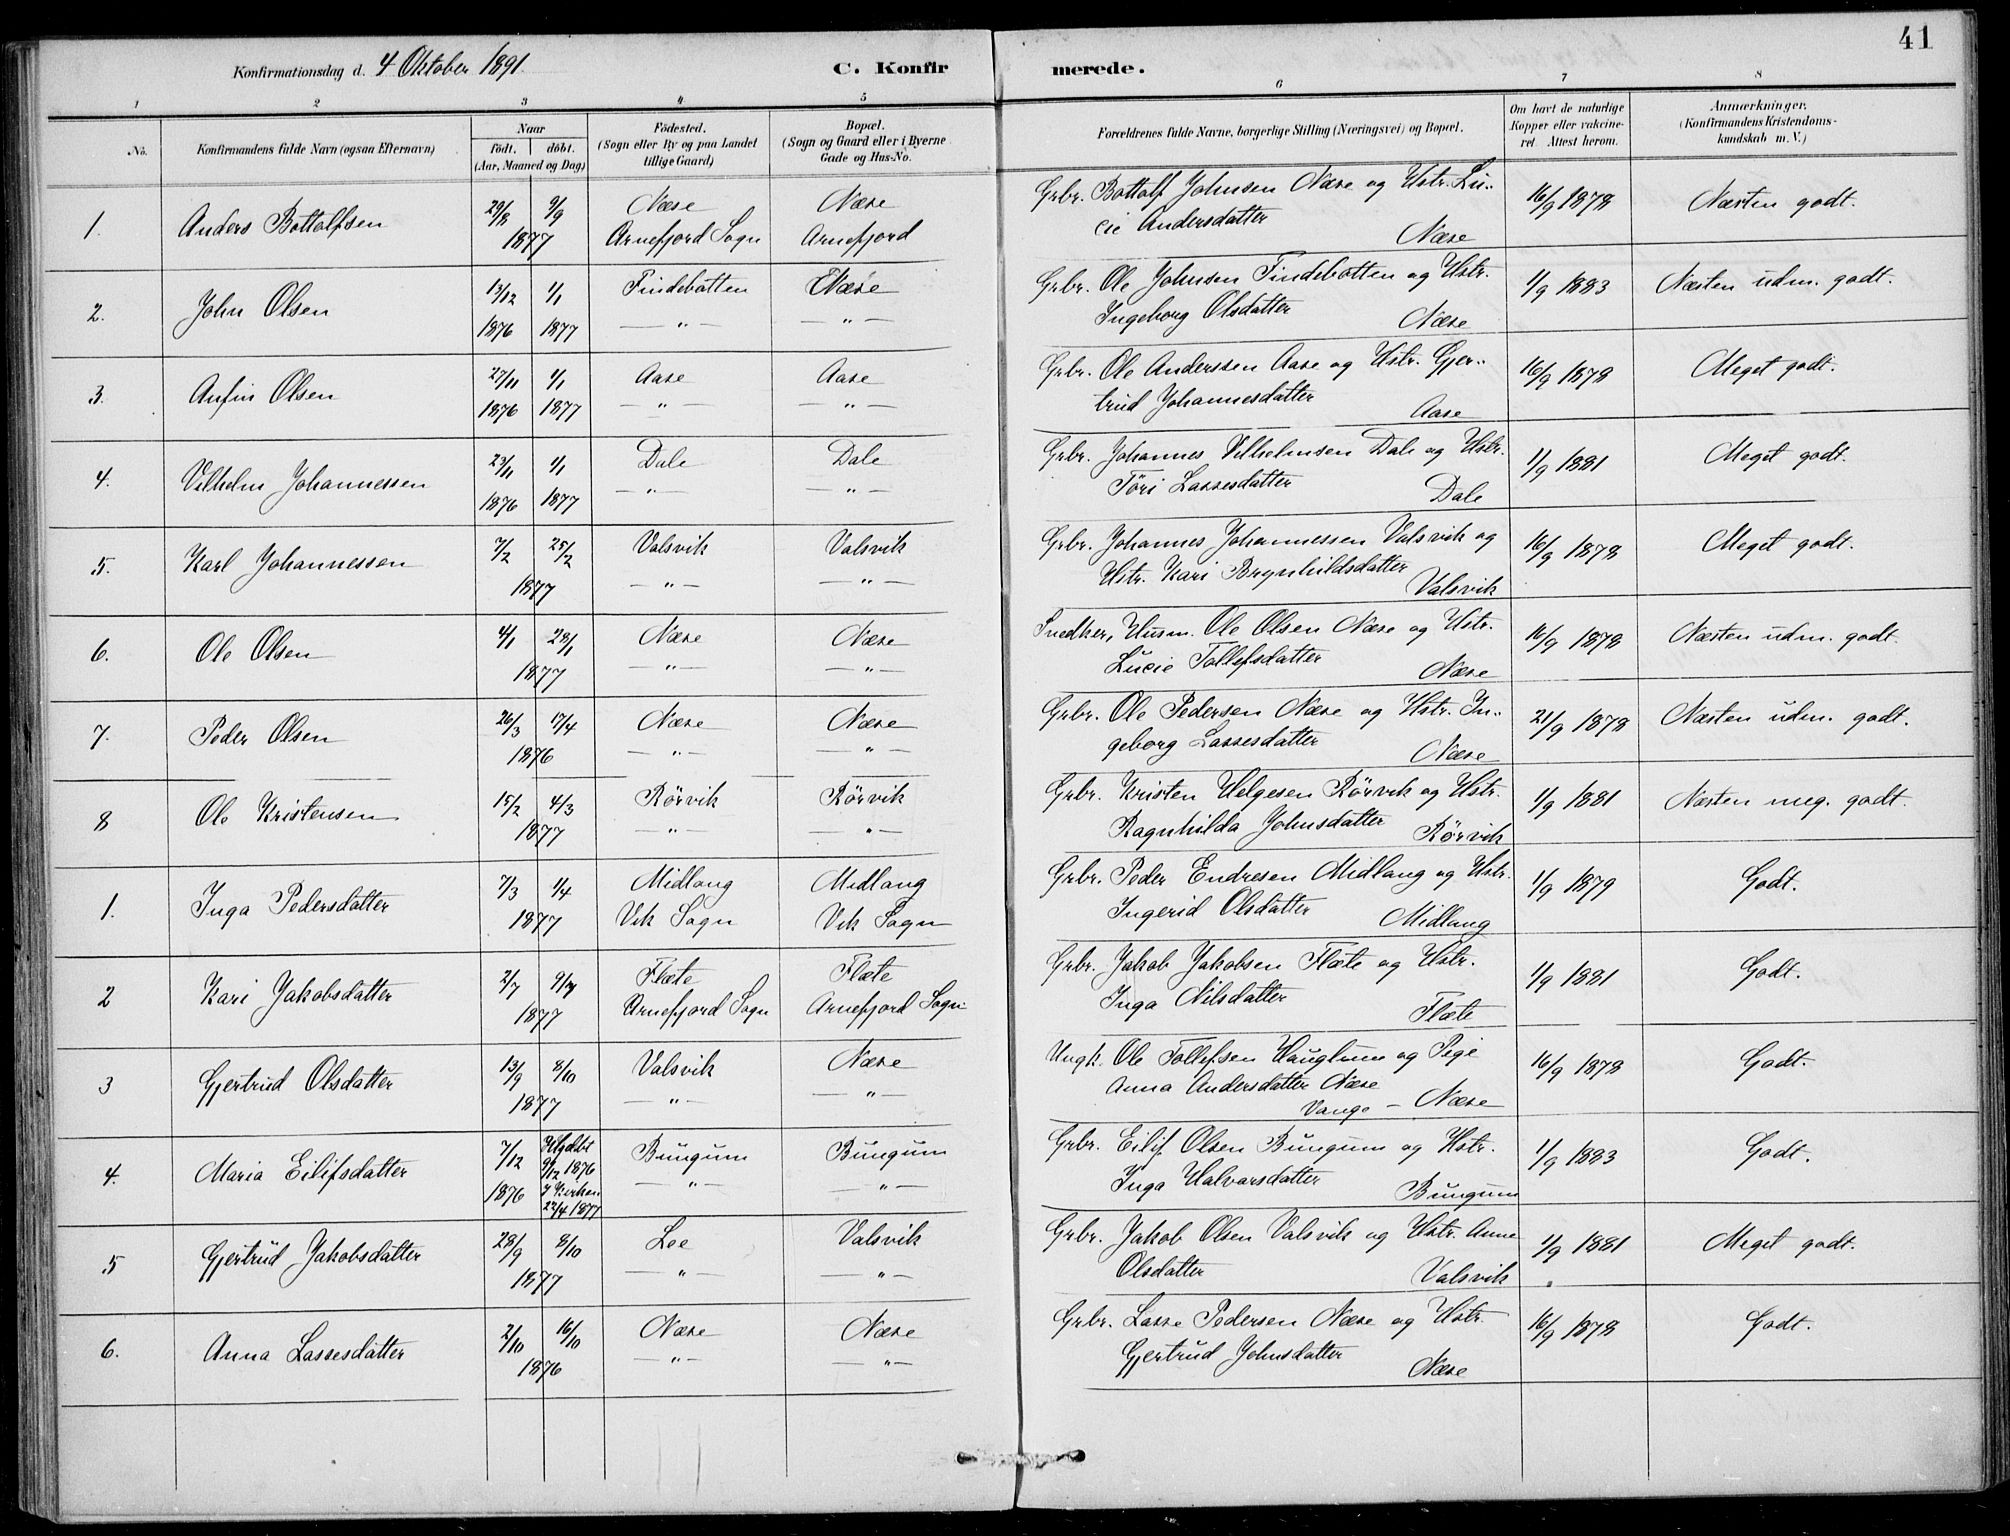 41
Konfirmationsdag d. 4 Oktober 1891.
C. Konfirmerede.
1 2 3 4 5 6 7 8
No. Konfirmandens fulde Navn (ogsaa Efternavn)
Naar
født. døbt.
(Aar, Maaned og Dag)
Fødested.
(Sogn eller By og paa Landet
tillige Gaard)
Bopæl.
(Sogn og Gaard eller i Byerne
Gade og Hus-No.
Forældrenes fulde Navne, borgerlige Stilling (Næringsvei) og Bopæl.
Om havt de naturlige
Kopper eller vakcine-
ret. Attest herom.
Anmærkninger.
(Konfirmandens Kristendoms-
kundskab m. V.)
1. Anders Bottolfsen 29/8 9/9 Næse Næse Grbr. Bottolf Johnsen Næse og Hstr. Lu- 16/9 1878 Næsten godt.
1877 Arnefjord Sogn Arnefjord cie Andersdatter Næse
2. John Olsen 13/12 1/1 Findebotten Næse Grbr. Ole Johnsen Findebotten og Hstr. 1/9 1883 Næsten udm. godt.
1876 1877 — " — — " — Ingeborg Olsdatter Næse
3. Anfin Olsen 27/11 1/1 Aase Aase Grbr. Ole Anderssen Aase og Hstr. Gjer- 16/9 1878 Meget godt.
1876 1877 — " — — " — trud Johannesdatter Aase
4. Vilhelm Johannessen 23/11 1/1 Dale Dale Grbr. Johannes Vilhelmsen Dale og Hstr. 1/9 1881 Meget godt.
1876 1877 — " — — " — Töri Lassesdatter Dale
5. Karl Johannessen 7/2 25/2 Valsvik Valsvik Grbr. Johannes Johannessen Valsvik og 16/9 1878 Meget godt.
1877 — " — — " — Hstr. Kari Brynhildsdatter Valsvik
6. Ole Olsen 4/1 28/1 Næse Næse Snedker, Husm. Ole Olsen Næse og Hstr. 16/9 1878 Næsten udm. godt.
1877 — " — — " — Lucie Tollefsdatter Næse
7. Peder Olsen 26/3 17/4 Næse Næse Grbr. Ole Pedersen Næse og Hstr. In- 21/9 1878 Næsten udm. godt.
1876 — " — — " — geborg Lassesdatter Næse
8 Ole Kristensen 15/2 4/3 Rörvik Rörvik Grbr. Kristen Helgesen Rörvik og Hstr. 1/9 1881 Næsten meg. godt.
1877 — " — — " — Ragnhilda Johnsdatter Rörvik
1. Inga Pedersdatter 7/3 1/4 Midlang Midlang Grbr. Peder Endresen Midlang og Hstr. 1/9 1879 Godt.
1877 Vik Sogn Vik Sogn Ingerid Olsdatter Midlang
2 Kari Jakobsdatter 2/7 Flæte Flæte Grbr. Jakob Jakobsen Flæte og Hstr. 1/9 1881 Godt.
1877 Arnefjord Sogn Arnefjord Sogn Inga Nilsdatter Flæte
3 Gjertrud Olsdatter 13/9 8/10 Valsvik Næse Ungk. Ole Tollefsen Hauglum og Pige 16/9 1878 Godt.
1877 — " — — " — Anna Andersdatter Næse
Vange — Næse
4. Maria Eilifsdatter 7/12 Hjdöbt Bungum Bungum Grbr. Eilif Olsen Bungum og Hstr. 1/9 1883 Godt.
9/12 1876 — " — — " — Inga Halvarsdatter Bungum
1876 I Kirken
22/4 1877
5 Gjertrud Jakobsdatter 28/9 8/10 Lee Valsvik Grbr. Jakob Olsen Valsvik og Hstr. Anne 1/9 1881 Meget godt.
1877 — " — — " — Olsdatter Valsvik
6. Anna Lassesdatter 2/10 16/10 Næse Næse Grbr. Lasse Pedersen Næse og Hstr. 16/9 1878 Godt.
1876 — " — — " — Gjertrud Johnsdatter Næse